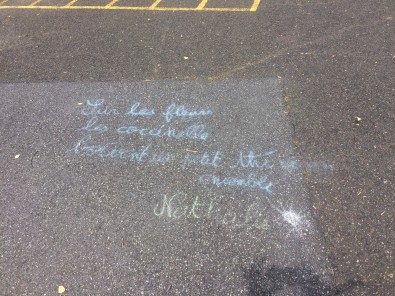 Sur les fleurs
les coccinelles
boivent un petit thé
ensemble
Nathalie